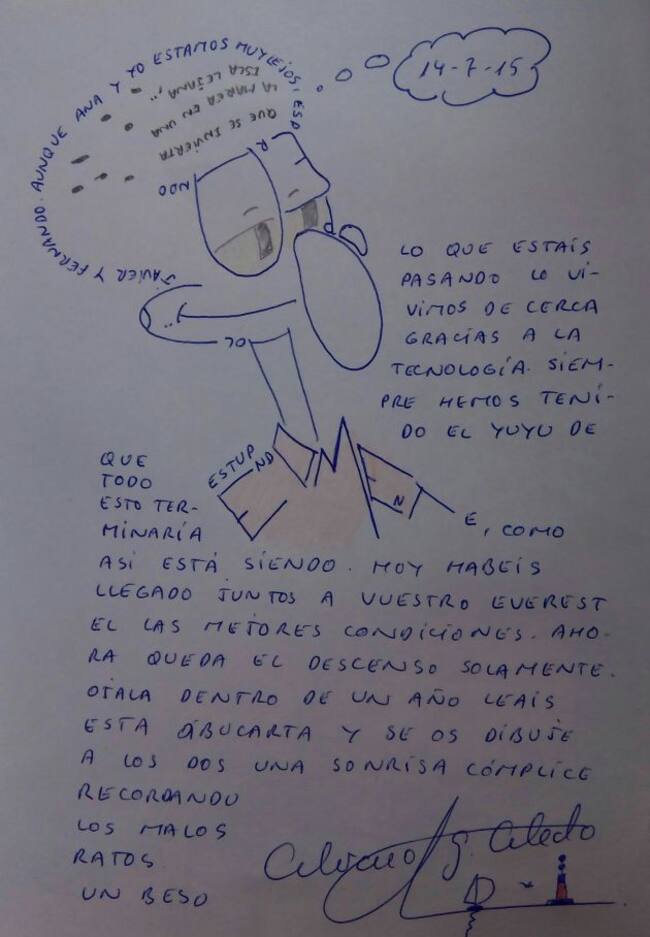 14-7-15
JAVIER Y FERNANDO. AUNQUE ANA Y YO ESTAMOS MUY LEJOS, ESP
R
NDO
QUE SE INVIERTA
LA MAREA EN UNA
ISLA LEJANA,
LO QUE ESTAÍS
PASANDO LO VI-
VIMOS DE CERCA
GRACIAS A LA
TECNOLOGÍA. SIEM-
PRE HEMOS TENÍ-
DO EL YUYU DE
QUE
TODO
ESTO TER-
MINARÍA
ESTUP
ND
N
E, COMO
ASÍ ESTÁ SIENDO. HOY HABEIS
LLEGADO JUNTOS A VUESTRO EVEREST
EL LAS MEJORES CONDICIONES. AHO-
RA QUEDA EL DESCENSO SOLAMENTE.
OJALA DENTRO DE UN AÑO LEAIS
ESTA DIBUCARTA Y SE OS DIBUJE
A LOS DOS UNA SONRISA CÓMPLICE
RECORDANDO
LOS MALOS
RATOS
UN BESO